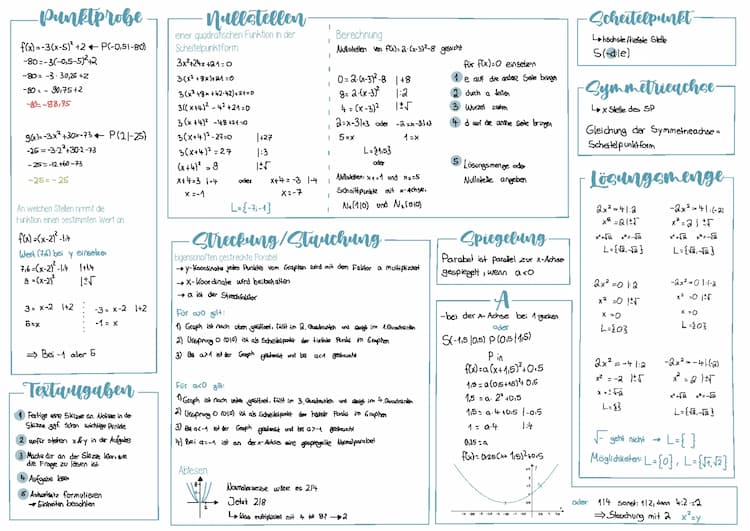 Punktprobe
f(x)=-3(x-5)²+2 ← P(-0,5|-80)
-80=-3(-0,5-5)²+2
-80=-3·30,25+2
-80=-90,75+2
-80=-88,75
g(x)=-3x²+30x-73 ← P(2|-25)
-25=-3·2²+30·2-73
-25=-12+60-73
-25=-25
An welchen Stellen nimmt die
Funktion einen bestimmten Wert an
f(x)=(x-2)²-1.4
Wert (7.6) bei y einsetzen
7.6=(x-2)²-1.4 |+1.4
9=(x-2)² |±√
3=x-2 |+2 -3=x-2 |+2
5=x -1=x
⇒ Bei -1 oder 5
Textaufgaben
1 Fertige eine Skizze an. Notiere in der
Skizze ggf. schon wichtige Punkte
2 wofür stehen x & y in der Aufgabe
3 Mache dir an der Skizze klar wie
die Frage zu lösen ist
4 Aufgabe lösen
5 Antwortsatz formulieren
→ Einheiten beachten
Nullstellen
einer quadratischen Funktion in der
Scheitelpunktform
3x²+24x+21=0
3(x²+8x)+21=0
3(x²+8x+4²-4²)+21=0
3((x+4)²-4²)+21=0
3(x+4)²-48+21=0
3(x+4)²-27=0 |+27
3(x+4)²=27 |:3
(x+4)²=9 |±√
x+4=3 |-4 oder x+4=-3 |-4
x=-1 x=-7
L={-7;-1}
Berechnung
Nullstellen von f(x)=2·(x-3)²-8 gesucht
0=2·(x-3)²-8 |+8
8=2·(x-3)² |:2
4=(x-3)² |±√
2=x-3|+3 oder -2=x-3|+3
5=x 1=x
L={1;5}
oder
Nullstellen: x=1 und x=5
Schnittpunkte mit x-Achse:
N₁(1|0) und N₂(5|0)
für f(x)=0 einsetzen
1 e auf die andere Seite bringen
2 durch a teilen
3 Wurzel ziehen
4 d auf die andere Seite bringen
5 Lösungsmenge oder
Nullstelle angeben
Streckung/Stauchung
Eigenschaften gestreckte Parabel
→ y-Koordinate jedes Punktes vom Graphen wird mit dem Faktor a multipliziert
→ x-Koordinate wird beibehalten
→ a ist der Streckfaktor
Für a>0 gilt:
1) Graph ist nach oben geöffnet, fällt im 2. Quadranten und steigt im 1. Quadranten
2) Ursprung O (0|0) ist als Scheitelpunkt der tiefste Punkt im Graphen
3) Bei a>1 ist der Graph gestreckt und bei a<1 gestaucht
Für a<0 gilt:
1) Graph ist nach unten geöffnet, fällt im 3. Quadranten und steigt im 4. Quadranten
2) Ursprung O (0|0) ist als Scheitelpunkt der höchste Punkt im Graphen
3) Bei a<-1 ist der Graph gestreckt und bei a>-1 gestaucht
4) Bei a=-1 ist an der x-Achse eine gespiegelte Normalparabel
Ablesen
Normalerweise wäre es 2|4
Jetzt 2|8
↳ Was multipliziert mit 4 8? → 2
Spiegelung
Parabel ist parallel zur x-Achse
gespiegelt, wenn a<0
A
-bei der A-Achse bei 1 gucken
oder
S(-1,5|0,5) P(0,5|1,5)
P in
f(x)=a(x+1,5)²+0,5
1,5=a(0,5+1,5)²+0,5
1,5=a·2²+0,5
1,5=a·4+0,5 |-0,5
1=a·4 |:4
0,25=a
f(x)=0,25(x+1,5)²+0,5
Scheitelpunkt
↳ höchste/tiefste Stelle
S(+d|e)
Symmetrieachse
↳ x Stelle des SP
Gleichung der Symmetrieachse=
Scheitelpunktform
Lösungsmenge
2x²=4 |:2 -2x²=-4 |:(-2)
x²=2 |±√ x²=2 |±√
x=√2 x=-√2 x=√2 x=-√2
L={√2,-√2} L={√2,-√2}
2x²=0 |:2 -2x²=0 |:-2
x²=0 |±√ x²=0 |±√
x=0 x=0
L={0} L={0}
2x²=-4 |:2 -2x²=-4 |:(-2)
x²=-2 |±√ x²=2 |±√
x=±√-2 x=√2 x=-√2
L={} L={√2,-√2}
√- geht nicht → L={ }
Möglichkeiten: L={0}, L={√2,√2}
oder 1|4 sonst: 1|2, dann 4:2=2
⇒ Stauchung mit 2 x²=y